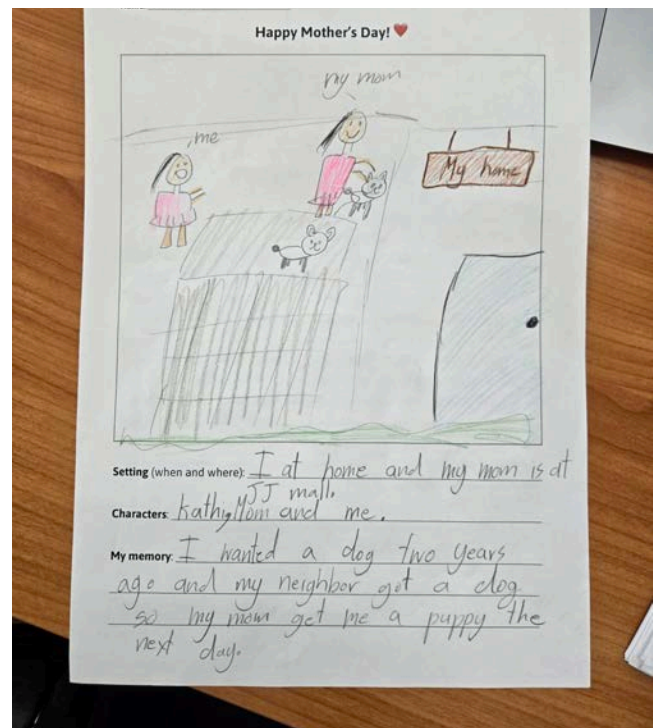 Happy Mother's Day! ❤
my mom
me
My home
Setting (when and where): I at home and my mom is at
JJ mall.
Characters: Kathy, Mom and me.
My memory: I wanted a dog two years
ago and my neighbor got a dog
so my mom get me a puppy the
next day.